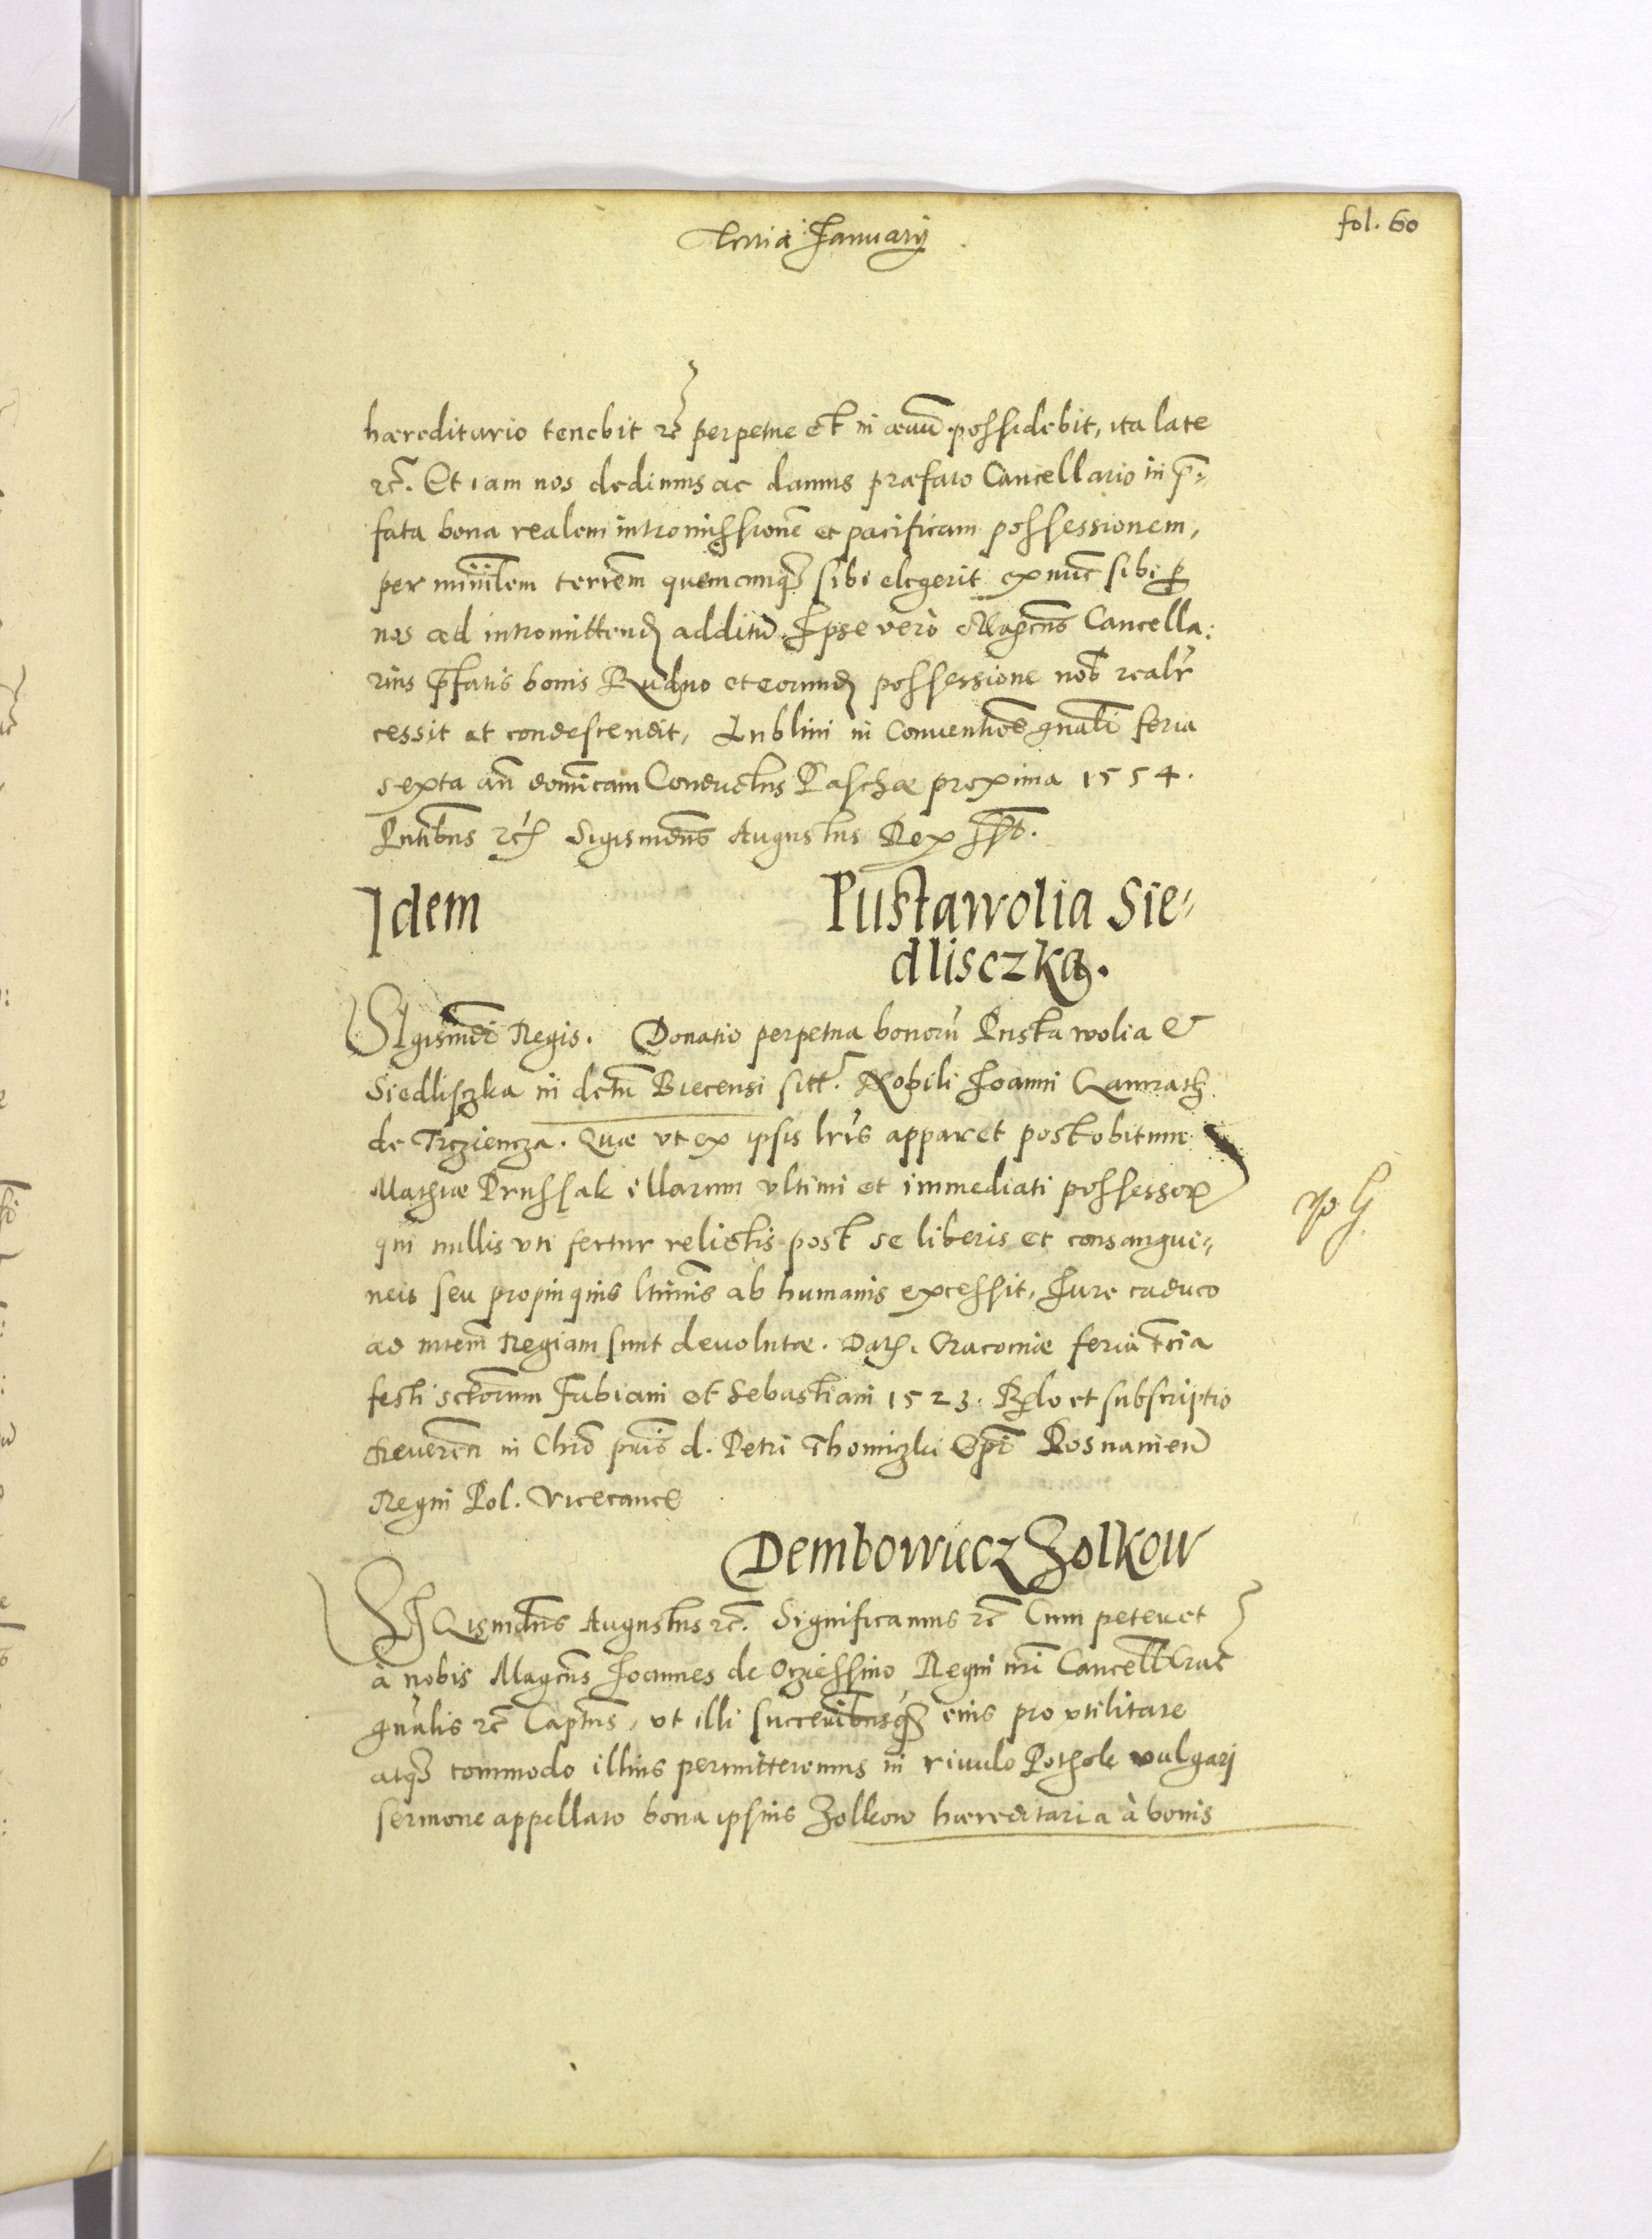 Tertia January
fol. 60
hæreditario tenebit &c perpetue et in ævū possidebit, ita late
&c. Et iam nos dedimus ac damus præfato Cancellario in p̄=
fata bona realem intromissionē et pacificam possessionem,
per miniłem terrēm quemcunq₃ sibi elegerit ex nūc sibi p̲
nos ad intromittend additū. Ipse verò Mag̅cus Cancella:
rius p̄fatis bonis Rudno et eorund possessione nob̄ realr̄
cessit et condescendit, Lublini in Conventiōe gn̄ali feria
sexta an̄ domīcam Conductus Paschæ proxima 1554.
Pntibus &c Sigismdus Augustus Rex sspt.
Idem
Pustawolia Sie=
dlisczka.
SIgismdi Regis. Donatio perpetua bonorū Pusta wolia &
Siedlisczka in dctū Biecensi sitt. Nobili Ioanni Qamrath
de Trzciencza. Quæ vt ex ipsis lris apparet post obitum
Mathiæ Prussak illarum vltimi et immediati possessor
qui nullis vti fertur relictis post se liberis et consangui=
neis seu propinquis ltimis ab humanis excessit, Iure caduco
ad mtem Regiam sunt devolutæ. Dat. Cracoviæ feria tcia
festi sctorum Fabiani et Sebastiani 1523. Rlo et subscriptio
Reverēn in Chro pris d. Petri Thomiczki Epi Posnanien
Regni Pol. Vicecance
Dembowiecz Zolkow
SIGismdus Augustus &c. Significamus &c Cum peteret
à nobis Magcus Ioannes de Ocziessino Regni nri Cancell Crac
gnalis &c Captus, vt illi succeribusq₃ eius pro vtilitate
atq₃ commodo illius permitteremus in rivulo Pothok vulgari
sermone appellato bona ipsius Zolkow hæreditaria à bonis